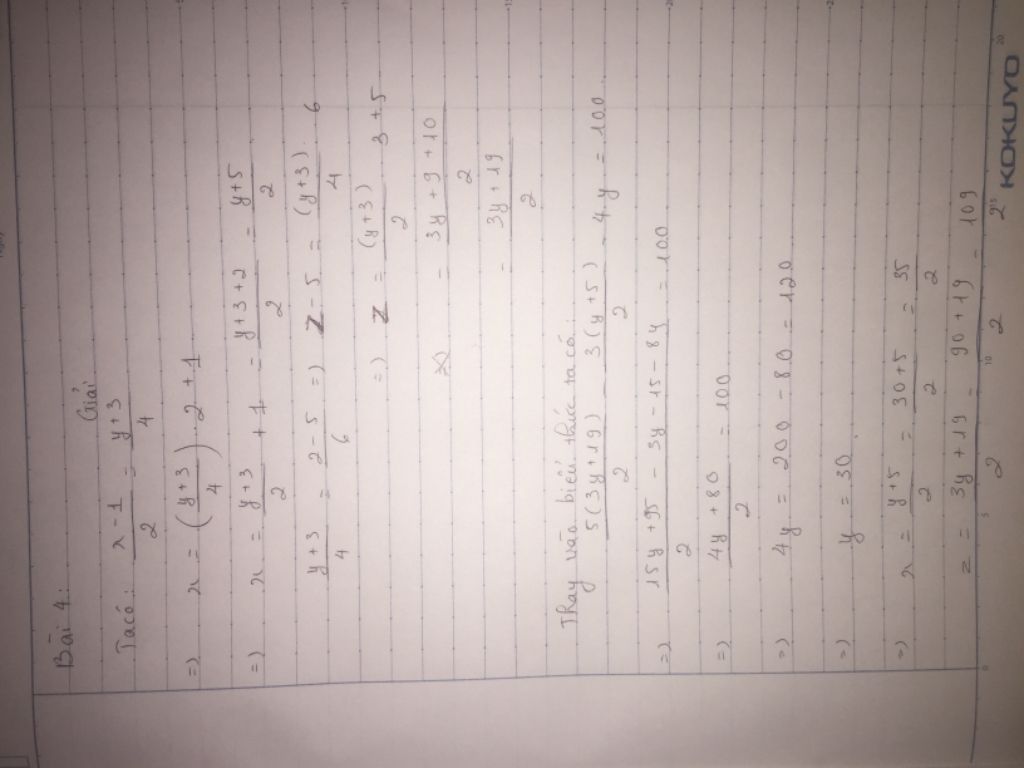 Bài 4:
Giải
Ta có: x - 1 / 2 = y + 3 / 4
=) x = ( y + 3 / 4 ) . 2 + 1
=) x = y + 3 / 2 + 1 = y + 3 + 2 / 2 = y + 5 / 2
y + 3 / 4 = 2 - 5 / 6 =) Z - 5 = (y + 3) . 6 / 4
=) Z = (y + 3) 3 + 5 / 2
= 3y + 9 + 10 / 2
= 3y + 19 / 2
Thay vào biểu thức ta có:
5 (3y + 19) / 2 - 3 (y + 5) / 2 - 4y = 100
=) 15y + 95 - 3y - 15 - 8y / 2 = 100
=) 4y + 80 / 2 = 100
=) 4y = 200 - 80 = 120
=) y = 30
=) x = y + 5 / 2 = 30 + 5 / 2 = 35 / 2
z = 3y + 19 / 2 = 90 + 19 / 2 = 109 / 2
KOKUYO